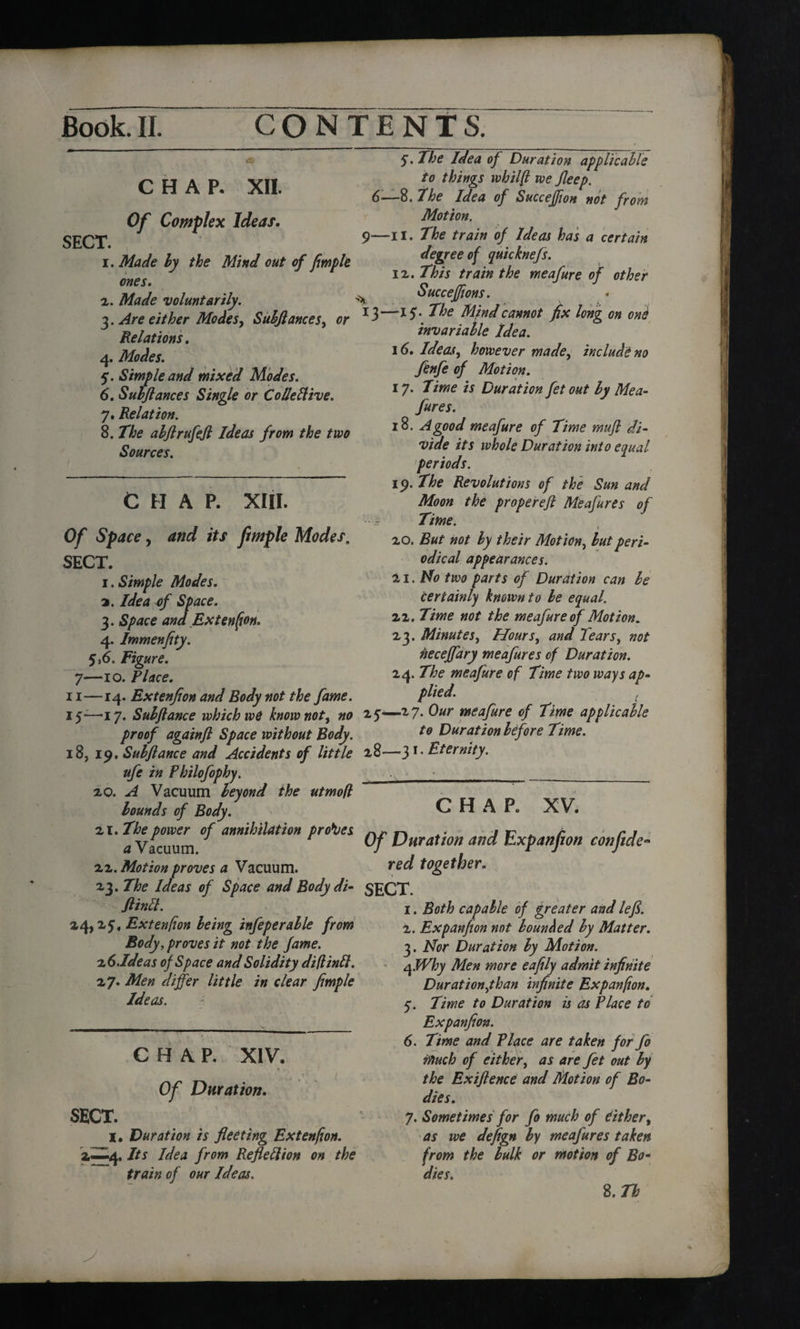 Book. II. CONTENTS.
CHAP. XII.
Of Complex Ideas.
SECT.
1. Made by the Mind out of ſimple
ones.
2. Made voluntarily.
3. Are either Modes, Subſtances, or
Relations.
4. Modes.
5. Simple and mixed Modes.
6. Subſtances Single or Collective.
7. Relation.
8. The abſtruſeſt Ideas from the two
Sources.
CHAP. XIII.
Of Space, and its ſimple Modes.
SECT.
1. Simple Modes.
2. Idea of Space.
3. Space and Extenſion.
4. Immenſity.
5,6. Figure.
7—10. Place.
11—14. Extenſion and Body not the ſame.
15—17. Subſtance which we know not, no
proof againſt Space without Body.
18, 19. Subſtance and Accidents of little
uſe in Philoſophy.
20. A Vacuum beyond the utmoſt
bounds of Body.
21. The power of annihilation proves
a Vacuum.
22. Motion proves a Vacuum.
23. The Ideas of Space and Body di-
ſtinct.
24, 25. Extenſion being inſeperable from
Body, proves it not the ſame.
26. Ideas of Space and Solidity diſtinct.
27. Men differ little in clear ſimple
Ideas.
CHAP. XIV.
Of Duration.
SECT.
1. Duration is fleeting Extenſion.
2—4. Its Idea from Reflection on the
train of our Ideas.
5. The Idea of Duration applicable
to things whilſt we ſleep.
6—8. The Idea of Succeſſion not from
Motion.
9—11. The train of Ideas has a certain
degree of quickneſs.
12. This train the meaſure of other
Succeſſions.
13—15. The Mind cannot fix long on one
invariable Idea.
16. Ideas, however made, include no
ſenſe of Motion.
17. Time is Duration ſet out by Mea-
ſures.
18. A good meaſure of Time muſt di-
vide its whole Duration into equal
periods.
19. The Revolutions of the Sun and
Moon the propereſt Meaſures of
Time.
20. But not by their Motion, but peri-
odical appearances.
21. No two parts of Duration can be
certainly known to be equal.
22. Time not the meaſure of Motion.
23. Minutes, Hours, and Years, not
neceſſary meaſures of Duration.
24. The meaſure of Time two ways ap-
plied.
25—27. Our meaſure of Time applicable
to Duration before Time.
28—31. Eternity.
CHAP. XV.
Of Duration and Expanſion conſide-
red together.
SECT.
1. Both capable of greater and leſs.
2. Expanſion not bounded by Matter.
3. Nor Duration by Motion.
4. Why Men more eaſily admit infinite
Duration, than infinite Expanſion.
5. Time to Duration is as Place to
Expanſion.
6. Time and Place are taken for ſo
much of either, as are ſet out by
the Exiſtence and Motion of Bo-
dies.
7. Sometimes for ſo much of either,
as we deſign by meaſures taken
from the bulk or motion of Bo-
dies.
8. Th